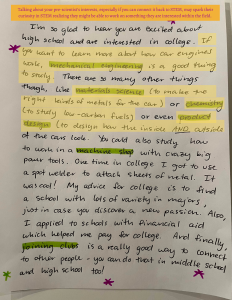 Talking about your pre-scientist's interests, especially if you can connect it back to STEM, may spark their
curiosity in STEM realizing they might be able to work on something they are interested in within the field.
I'm so glad to hear you are excited about
high school and are interested in college. If
you want to learn more about how car engines
work, mechanical engineering is a good thing
to study. There are so many other things
though, like materials science (to make the
right kinds of metals for the car) or chemistry
(to study low-carbon fuels) or even product
design (to design how the inside AND outside
of the cars look. You could also study how
to work in a machine shop with crazy big
power tools. One time in college I got to use
a spot welder to attach sheets of metal. It
was cool! My advice for college is to find
a school with lots of variety in majors,
just in case you discover a new passion. Also,
I applied to schools with financial aid
which helped me pay for college. And finally,
joining clubs is a really good way to connect
to other people - you can do that in middle school
and high school too!